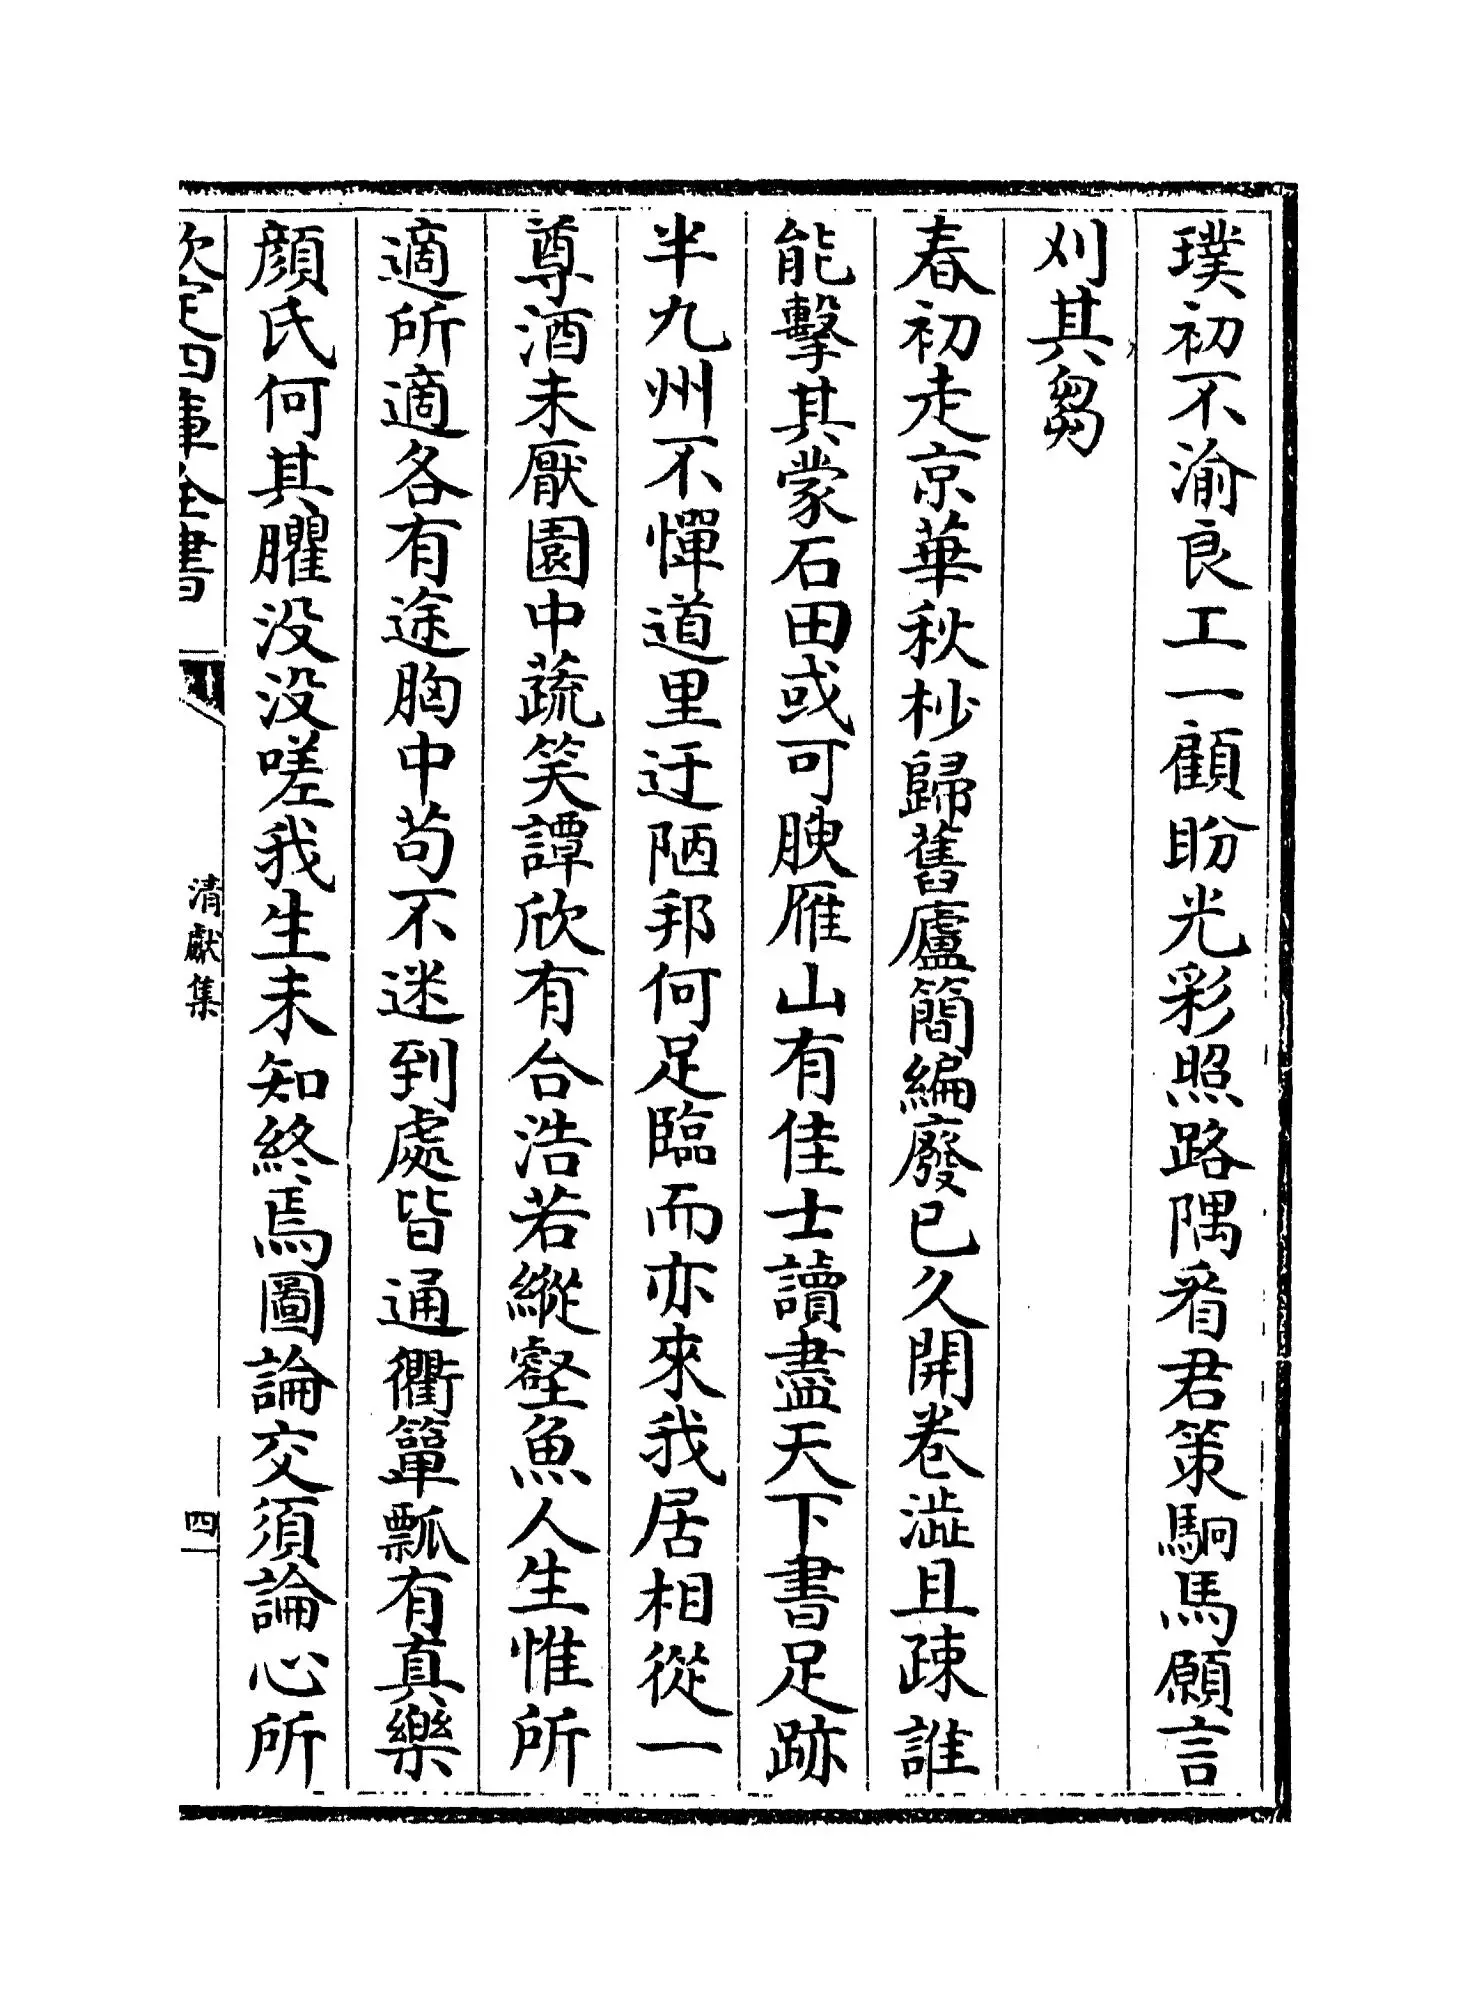 璞初不渝良工一顧盼光彩照路隅看君策駉馬願言
刈其芻
春初走京華秋杪歸舊廬簡編廢已久開卷澁且疎誰
能擊其蒙石田或可腴雁山有佳士讀盡天下書足跡
半九州不憚道里迂陋邦何足臨而亦來我居相從一
尊酒未厭園中蔬笑譚欣有合浩若縱壑魚人生惟所
適所適各有途胸中苟不迷到處皆通衢簞瓢有真樂
顔氏何其臞没没嗟我生未知終焉圖論交須論心所
欽定四庫全書
清獻集
四